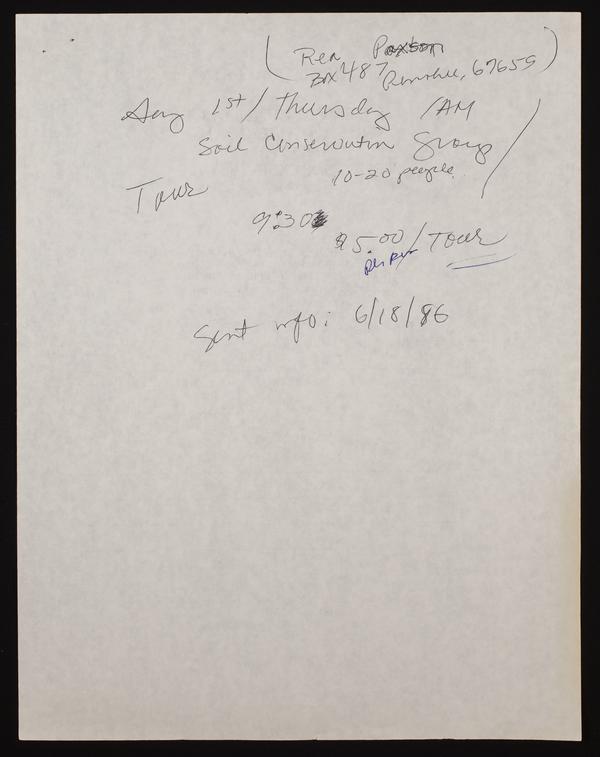 (Rex Paxson
Box 487 Penokee, 67659)
1st / Thursday / AM
Soil Conservation Group /
10-20 people
Tour
9:30
$5.00 / Tour
per
Sent info: 6/18/86